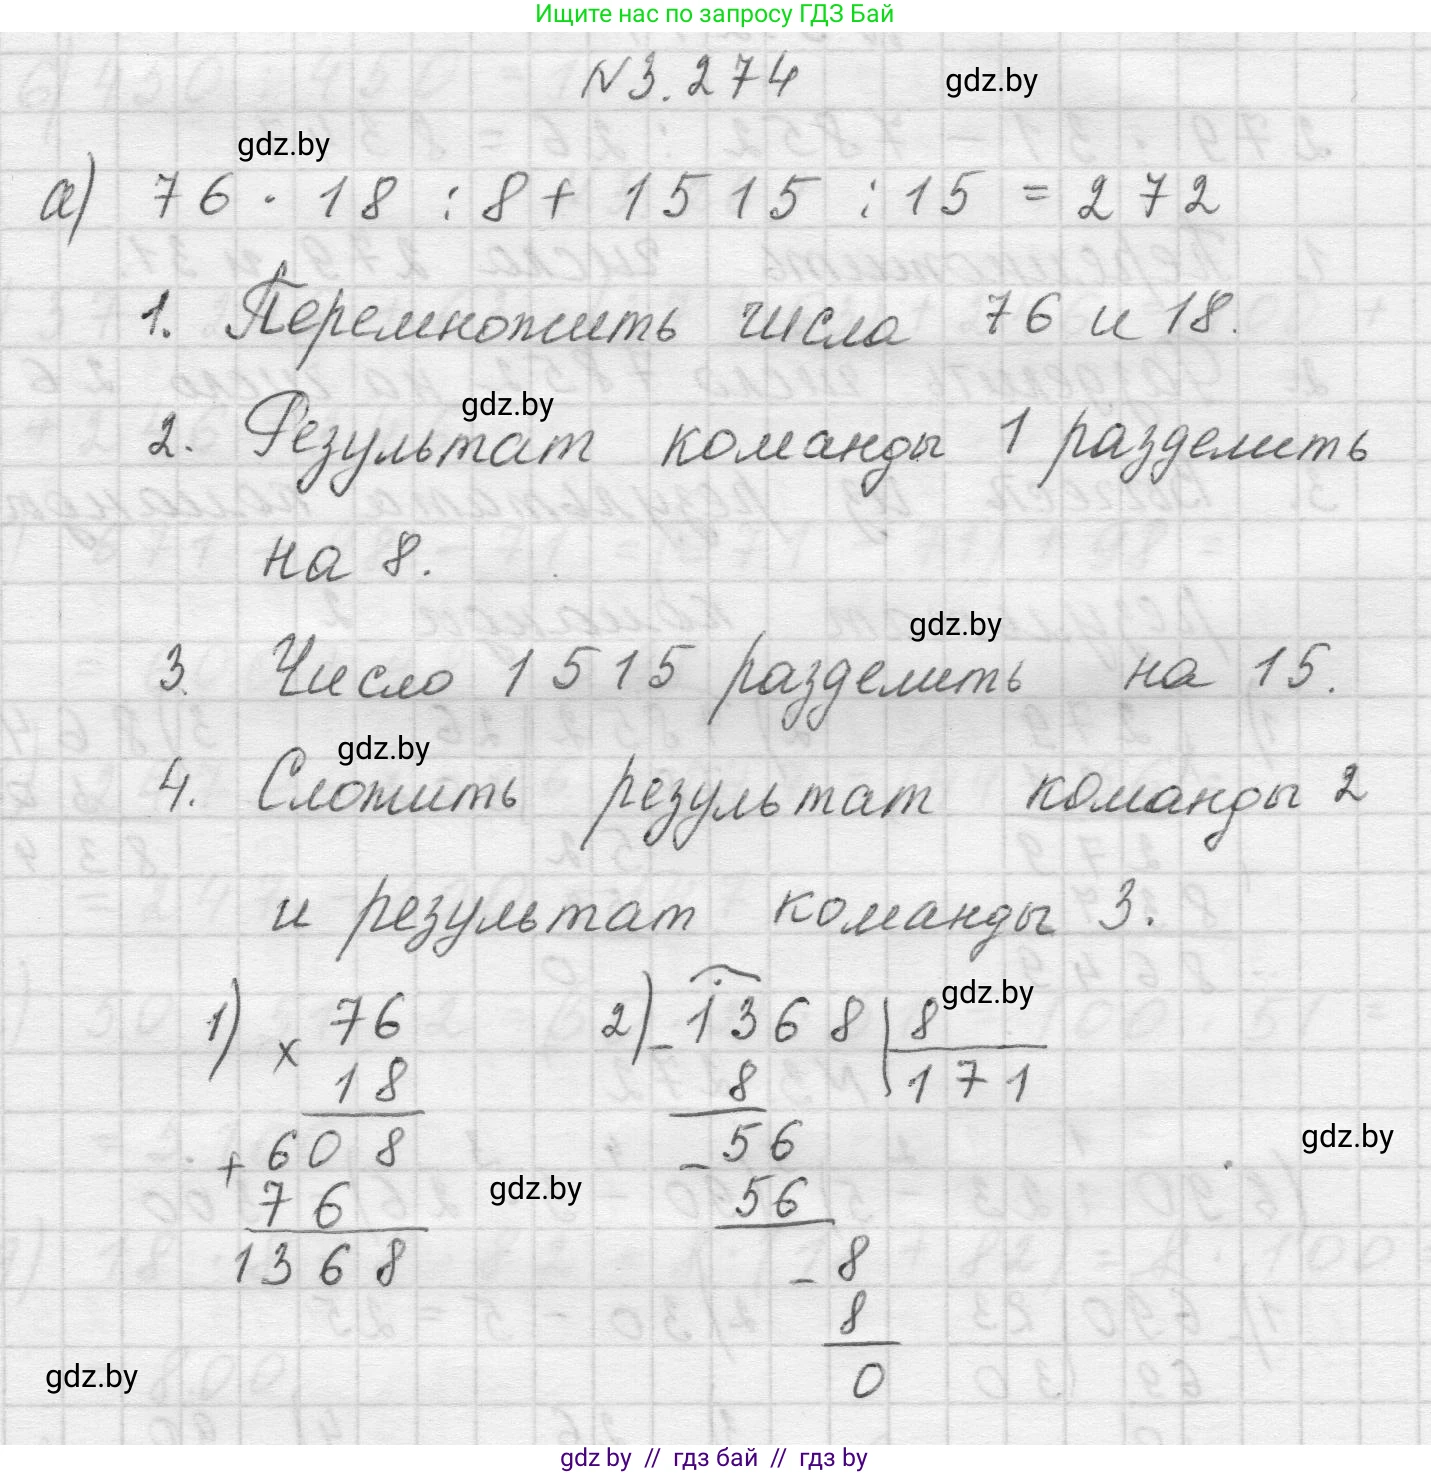 Ищите нас по запросу ГДЗ Бай
N3.274
gdz.by
gdz.by
а) 76 · 18 : 8 + 1515 : 15 = 272
1. Перемножить числа 76 и 18.
gdz.by
2. Результат команды 1 разделить
на 8.
gdz.by
3. Число 1515 разделить на 15.
gdz.by
4. Сложить результат команды 2
и результат команды 3.
1) 76 2) 1368 | 8 gdz.by
x 18 - 8 171
+ 608 56 gdz.by
76 gdz.by - 56
1368 - 8
8
gdz.by 0
gdz.by // гдз бай // gdz by